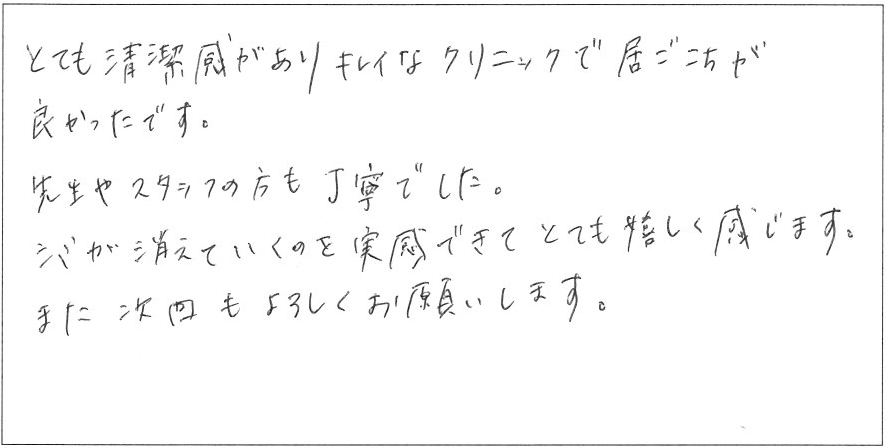 とても清潔感がありキレイなクリニックで居ごこちが
良かったです。
先生やスタッフの方も丁寧でした。
シミが消えていくのを実感できてとても嬉しく感じます。
また次回もよろしくお願いします。